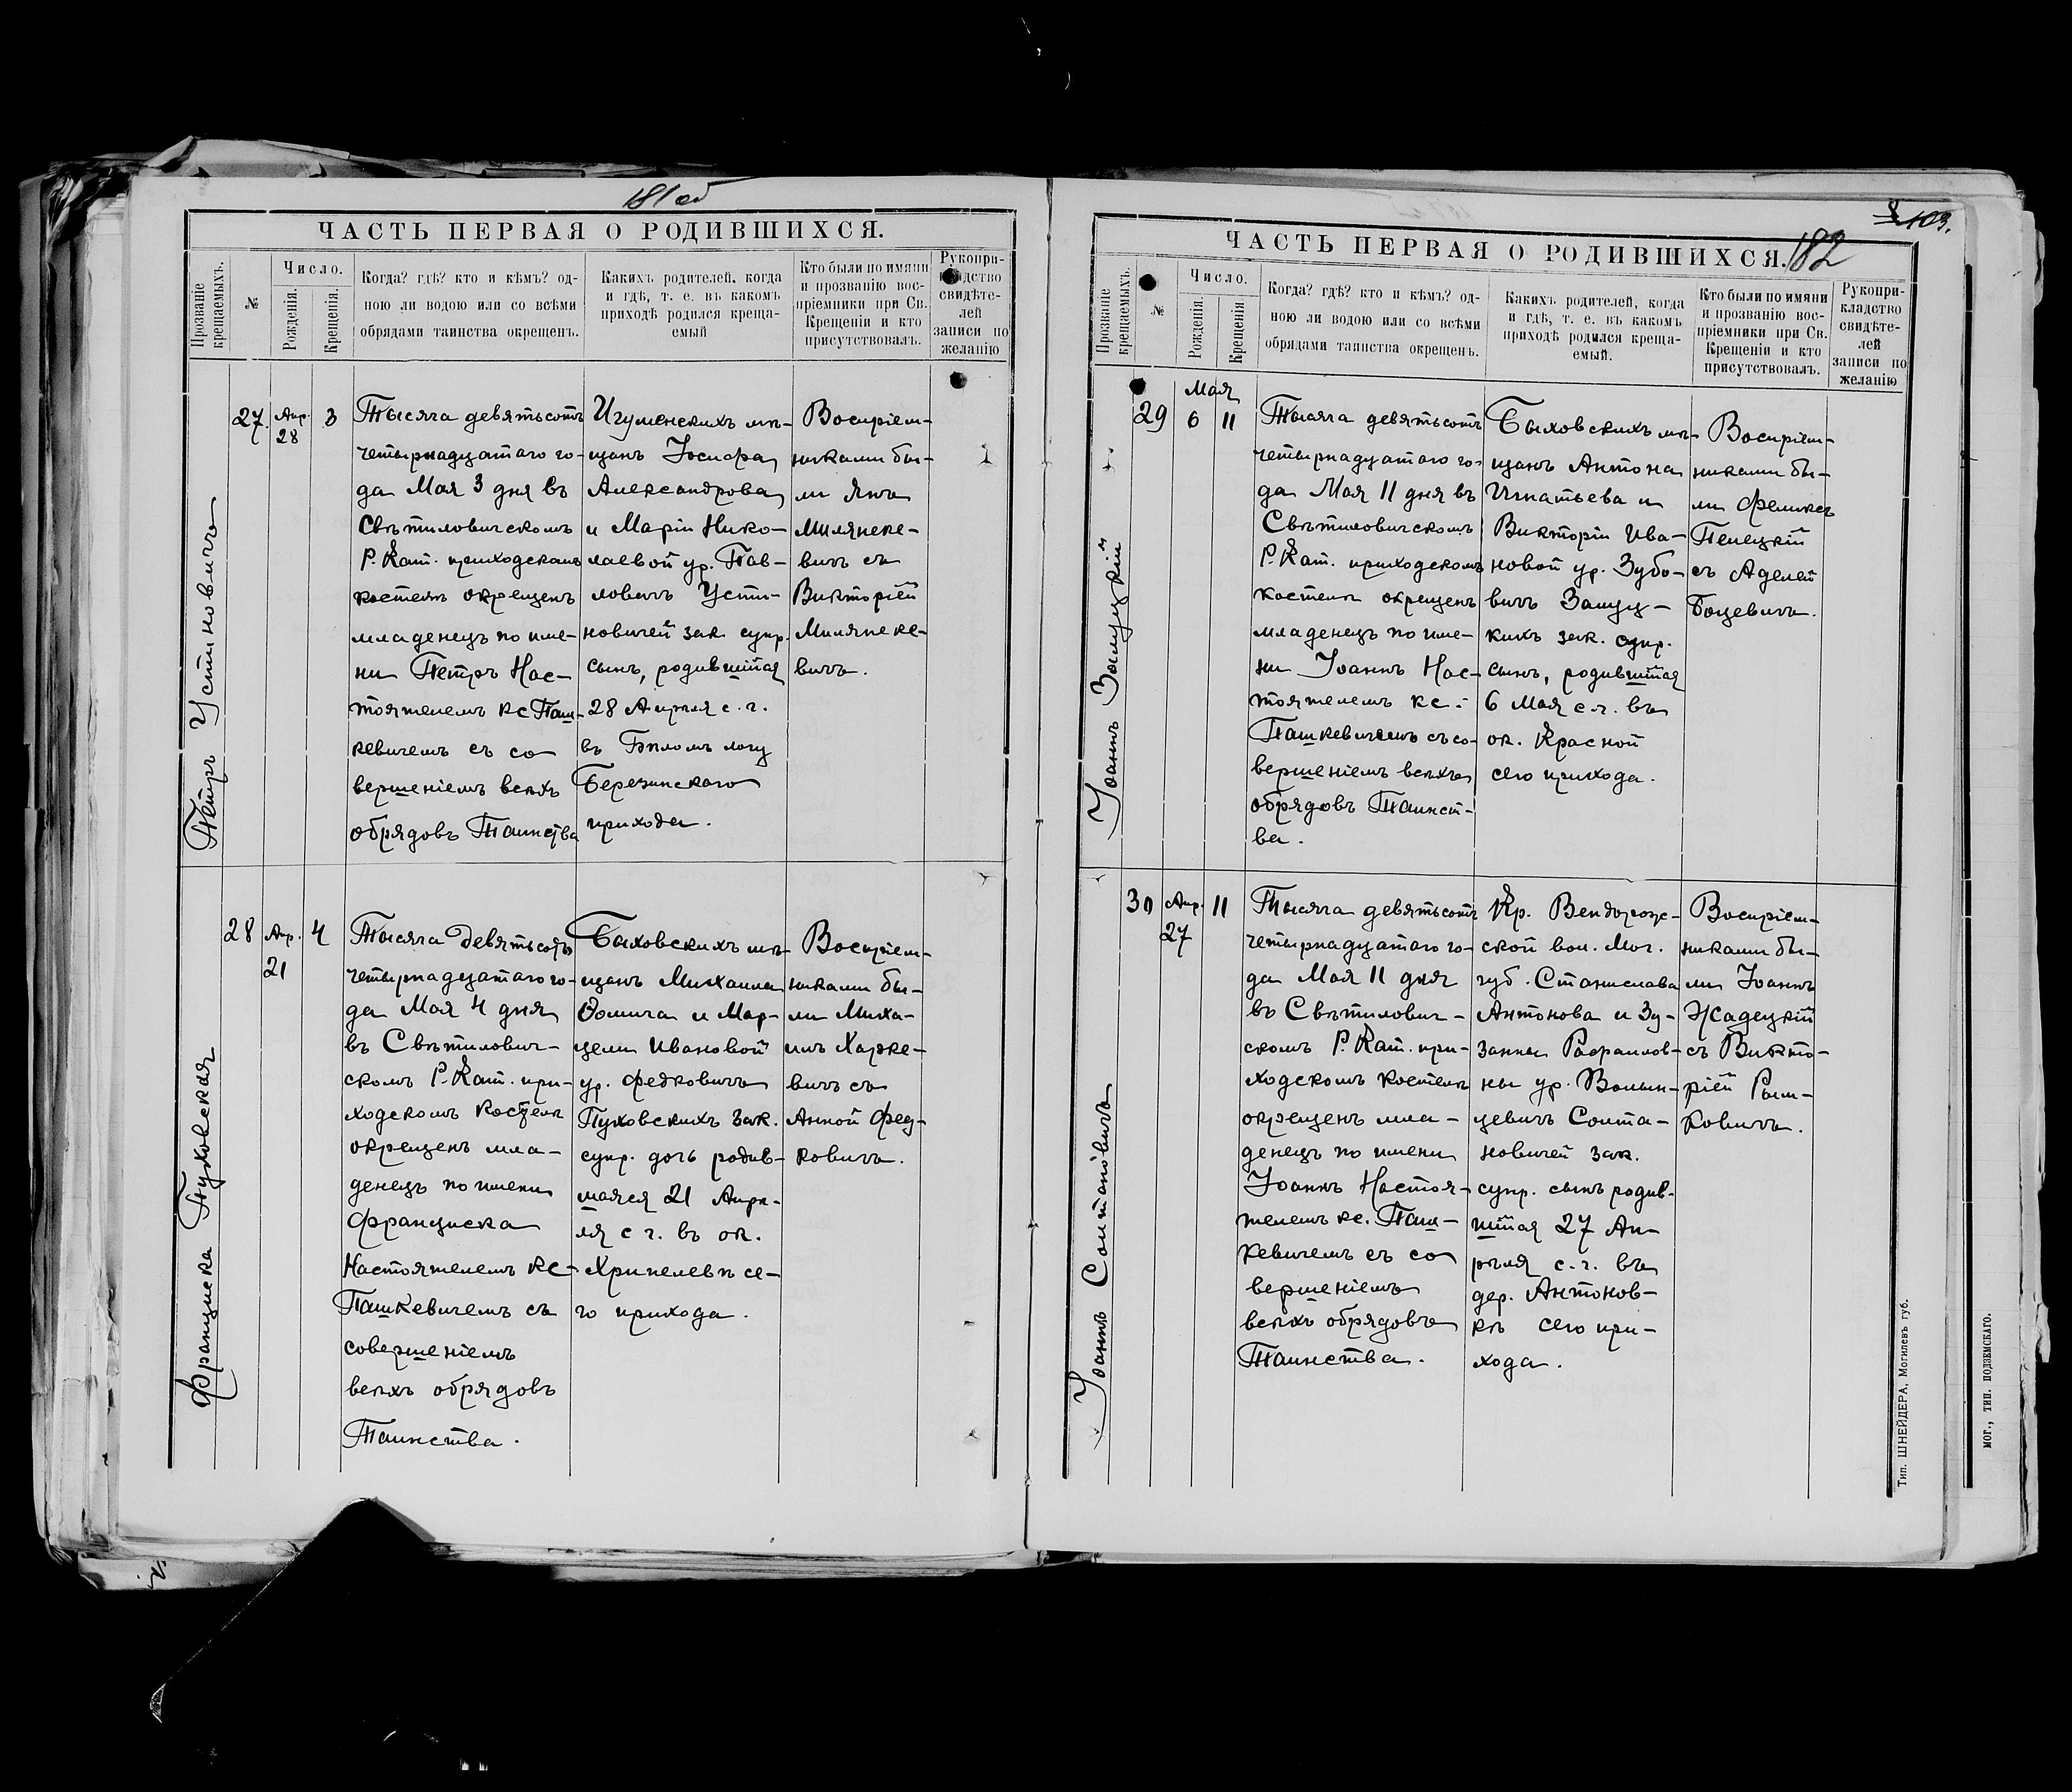 181 об
ЧАСТЬ ПЕРВАЯ О РОДИВШИХСЯ.
Прозваніе крещаемыхъ.
№
Число.
Рожденія.
Крещенія.
Когда? гдѣ? кто и кѣмъ? од-
ною ли водою или со всѣми
обрядами таинства окрещенъ.
Какихъ родителей, когда
и гдѣ, т. е. въ какомъ
приходѣ родился креща-
емый
Кто были по имяни
и прозванію вос-
пріемники при Св.
Крещеніи и кто
присутствовалъ.
Рукопри-
кладство
свидѣте-
лей
записи по
желанію
Петръ Устиновичъ
27.
Апр.
28
3
Тысяча девятьсотъ
четырнадцатаго го-
да Мая 3 дня въ
Свѣтиловичскомъ
Р. Кат. приходскомъ
костелѣ окрещенъ
младенецъ по име-
ни Петръ Нас-
тоятелемъ кс Паш-
кевичемъ съ со
вершеніемъ всѣхъ
обрядовъ Таинства
Игуменскихъ мѣ-
щанъ Іосифа
Александрова
и Маріи Нико-
лаевой ур. Пав-
ловичъ Усти-
новичей зак. супр.
сынъ, родившійся
28 Апрѣля с. г.
въ Бѣломъ логу
Березинскаго
прихода.
Воспріем-
никами бы-
ли Янъ
Милянке-
вичъ съ
Викторіей
Милянке-
вичъ.
Франциска Пуховская
28
Апр.
21
4
Тысяча девятьсотъ
четырнадцатаго го-
да Мая 4 дня
въ Свѣтилович-
скомъ Р. Кат. при-
ходскомъ костелѣ
окрещенъ мла-
денецъ по имени
Франциска
Настоятелемъ кс
Пашкевичемъ съ
совершеніемъ
всѣхъ обрядовъ
Таинства.
Быховскихъ мѣ-
щанъ Михаила
Ѳомича и Мар-
цели Ивановой
ур. Федковичъ
Пуховскихъ зак.
супр. дочь родив-
шаяся 21 Апрѣ-
ля с г. въ ок.
Хрипелевѣ се-
го прихода.
Воспріем-
никами бы-
ли Миха-
илъ Харке-
вичъ съ
Анной Фед-
ковичъ.
182
103.
ЧАСТЬ ПЕРВАЯ О РОДИВШИХСЯ.
Прозваніе крещаемыхъ.
№
Число.
Рожденія.
Крещенія
Когда? гдѣ? кто и кѣмъ? од-
ною ли водою или со всѣми
обрядами таинства окрещенъ.
Какихъ родителей, когда
и гдѣ, т. е. въ какомъ
приходѣ родился креща-
емый.
Кто были по имяни
и прозванію вос-
пріемники при Св.
Крещеніи и кто
присутствовалъ.
Рукопри-
кладство
свидѣте-
лей
записи по
желанію
Іоаннъ Залуцкій
Мая
29
6
11
Тысяча девятьсотъ
четырнадцатаго го-
да Мая 11 дня въ
Свѣтиловичскомъ
Р. Кат. приходскомъ
костелѣ окрещенъ
младенецъ по име-
ни Іоаннъ Нас-
тоятелемъ кс.
Пашкевичемъ съ со-
вершеніемъ всѣхъ
обрядовъ Таинст-
ва.
Быховскихъ мѣ-
щанъ Антона
Игнатьева и
Викторіи Ива-
новой ур. Зубо-
вичъ Залуц-
кихъ зак. супр.
сынъ, родившійся
6 Мая с. г. въ
ок. Красной
сего прихода.
Воспріем-
никами бы-
ли Феликсъ
съ Аделей
Боцевичъ.
Іоаннъ Солтановичъ
30
Апр.
27
11
Тысяча девятьсотъ
четырнадцатаго го-
да Мая 11 дня
въ Свѣтилович-
скомъ Р. Кат. при-
ходскомъ костелѣ
окрещенъ мла-
денецъ по имени
Іоаннъ Настоя-
телемъ кс. Паш-
кевичемъ съ со
вершеніемъ
всѣхъ обрядовъ
Таинства.
Кр. Вендорож-
ской вол. Мог.
губ. Станислава
Антонова и Зу-
занны Рафаилов-
ны ур. Волын-
цевичъ Солта-
новичей зак.
супр. сынъ родив-
шійся 27 Ап-
рѣля с. г. въ
дер. Антонов-
кѣ сего при-
хода.
Воспріем-
никами бы-
ли Іоаннъ
Жадецкій
съ Викто-
ріей Рым-
ковичъ.
Тип. ШНЕЙДЕРА, Могилевъ губ.
МОГ., ТИП. ПОДЗЕМСКАГО.